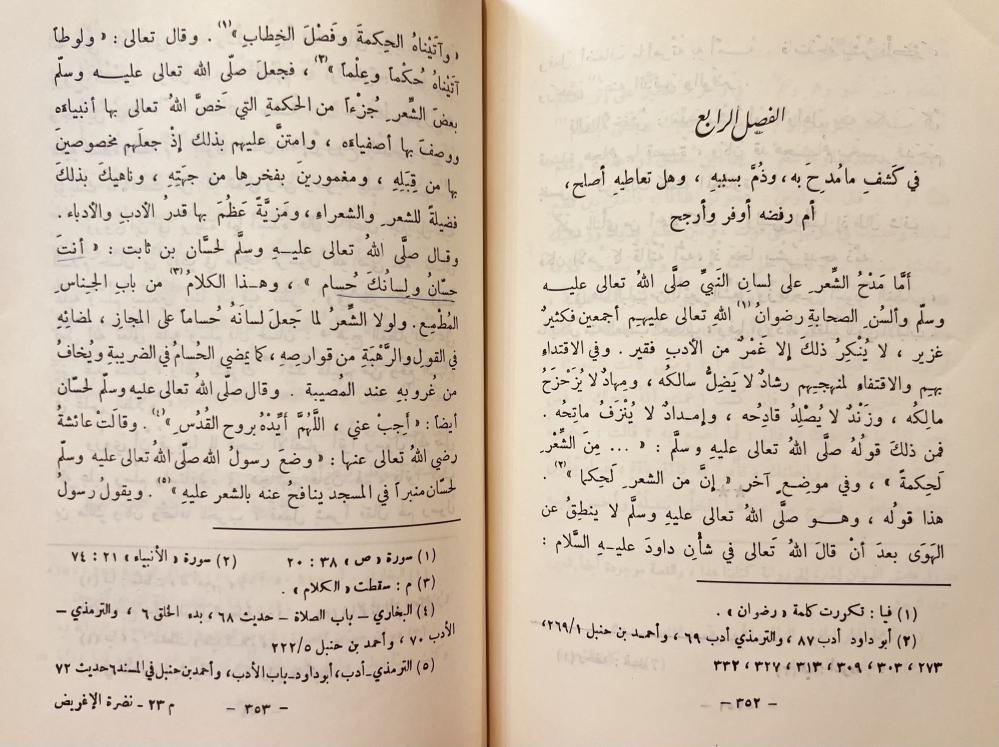 الفصل الرابع
في كَشفِ ما مُدِحَ به، وذُمَّ بسببه، وهل تعاطيه أصلح،
أم رفضه أوفر وأرجح
أمَّا مَدْحُ الشِّعرِ على لسانِ النَّبيِّ صلَّى اللهُ تعالى عليه
وسلّم وألسُنِ الصحابةِ رضوانُ (١) اللهِ تعالى عليهم أجمعين فكثيرٌ
غزير، لا يُنْكِرُ ذلكَ إلا غَمْرٌ من الأدبِ فقير. وفي الاقتداءِ
بهم والاقتفاءِ لمنهجهم رشادٌ لا يَضِلُّ سالكُه، ومِهادٌ لا يُزَحْزَحُ
مالِكُه، وزَنْدٌ لا يُصْلِدُ قادِحُه، وإمدادٌ لا يُنْزَفُ ماتِحُه.
فمن ذلكَ قولُهُ صلَّى اللهُ تعالى عليهِ وسلَّم: « ... مِنَ الشِّعْرِ
لَحِكمةً »، وفي موضِعٍ آخرِ « إنَّ من الشعرِ لَحِكما »(٢).
هذا قولُه، وهو صلَّى اللهُ تعالى عليهِ وسلَّم لا ينطِقُ عن
الهَوَى بعدَ أنْ قالَ اللهُ تَعالى في شأنِ داودَ عليهِ السَّلام:
(١) فيا: تكررت كلمة «رضوان».
(٢) أبو داود أدب ٨٧، والترمذي أدب ٦٩، وأحمد بن حنبل ٢٦٩/١،
٢٧٣، ٣٠٣، ٣٠٩، ٣١٣، ٣٢٧، ٣٣٢
– ٣٥٢ –
« وآتَيْناهُ الحِكمةَ وفَصْلَ الخِطابِ »(١). وقال تعالى: « ولوطاً
آتَيْناهُ حُكْماً وعِلْماً »(٢)، فجعلَ صلّى اللهُ تعالى عليه وسلّم
بعضَ الشِّعرِ جُزْءاً من الحكمةِ التي خَصَّ اللهُ تعالى بها أنبياءَه
ووصفَ بها أصفياءَه، وامتنَّ عليهم بذلك إذْ جعلَهم مخصوصينَ
بها من قِبَلِهِ، ومغمورينَ بفخرِها من جهَتِهِ، وناهيكَ بذلكَ
فضيلةً للشعرِ والشعراءِ، ومَزيَّةً عَظُمَ بها قدرُ الأدبِ والأدباء.
وقال صلَّى اللهُ تعالى عليهِ وسلَّم لحسَّان بن ثابت: « أنتَ
حسّانُ ولِسانُكَ حُسام »، وهذا الكلامُ(٣) من بابِ الجِناسِ
المُطْمِع. ولولا الشِّعرُ لما جَعلَ لسانَهُ حُساماً على المجازِ، لمضائِهِ
في القولِ والرَّهْبَةِ من قوارصِهِ، كما يمضي الحُسامُ في الضريبةِ ويُخافُ
من غُروبِهِ عند المُصيبة. وقال صلّى اللهُ تعالى عليه وسلّم لحسّان
أيضاً: « أجِبْ عني، اللَّهُمَّ أيِّدْهُ بروحِ القُدُسِ »(٤). وقالَتْ عائشةُ
رضي اللهُ تعالى عنها: « وضعَ رسولُ الله صلّى اللهُ تعالى عليه وسلّم
لحسّان منبراً في المسجد ينافحُ عنه بالشعر عليهِ »(٥). ويقولُ رسولُ
(١) سورة «ص» ٣٨: ٢٠ (٢) سورة «الأنبياء» ٢١: ٧٤
(٣) م: سقطت «الكلام».
(٤) البخاري – باب الصلاة – حديث ٦٨، بدء الخلق ٦، والترمذي –
الأدب ٧٠، وأحمد بن حنبل ٢٢٢/٥
(٥) الترمذي – أدب، أبو داود – باب الأدب، وأحمد بن حنبل في المسند ٦ حديث ٧٢
– ٣٥٣ – م ٢٣ – نضرة الإغريض